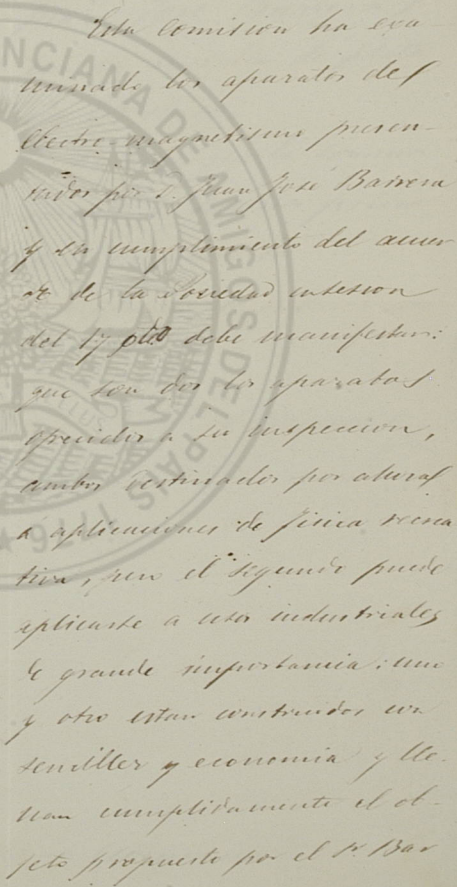 Esta Comision ha exa-
minado los aparatos del
electro-magnetismo presen-
tados por D. Juan José Barrera
y en cumplimiento del acuer
do de la Sociedad en sesion
del 17 debe manifestar:
que son dos los aparatos
ofrecidos a su inspeccion,
ambos destinados por ahora
a aplicaciones de fisica recrea
tiva, pero el segundo puede
aplicarse a usos industriales
de grande importancia: uno
y otro estan construidos con
sencillez y economia y lle-
nan cumplidamente el ob-
jeto propuesto por el Sr. Bar
NCIANA DE AMIGOS DEL PAIS 1776